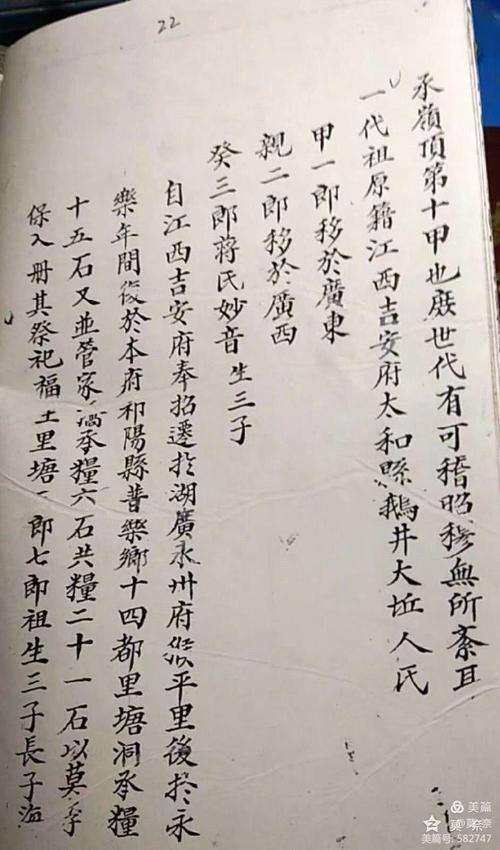 22
承嶺頂第十甲也厥世代有可稽昭穆無所紊耳
一代祖原籍江西吉安府太和縣鵝井大坵人氏
甲一郎移於廣東
親二郎移於廣西
癸三郎蔣氏妙音生三子
自江西吉安府奉招遷於湖廣永州府 平里後於永
樂年間復於本府祁陽縣普樂鄉十四都里塘洞承糧
十五石又並管家 承糧六石共糧二十一石以莫季
保入冊其祭祀福土里塘一郎七郎祖生三子長子海
美篇
@莫奈
莫奈
美篇号: 582747